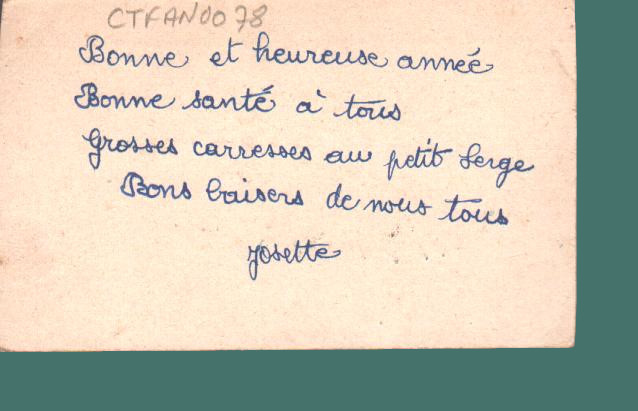 CTFAN0078
Bonne et heureuse année
Bonne santé à tous
Grosses carresses au petit Serge
Bons baisers de nous tous
Josette